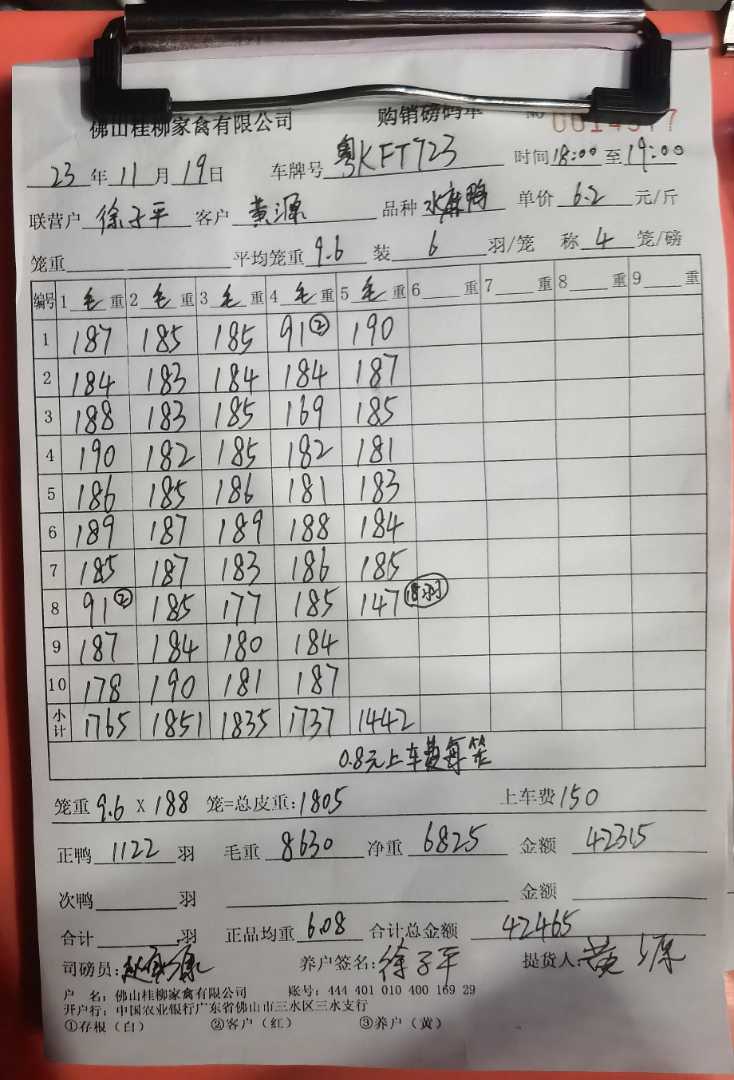 佛山桂柳家禽有限公司 购销磅码单 № 0014977
23年11月19日 车牌号 粤KFT723 时间18:00至19:00
联营户 徐子平 客户 黄源 品种 水麻鸭 单价 6.2 元/斤
笼重 平均笼重 9.6 装 6 羽/笼 称 4 笼/磅
编号 1 毛 重 2 毛 重 3 毛 重 4 毛 重 5 毛 重 6 重 7 重 8 重 9 重
1 187 185 185 91② 190
2 184 183 184 184 187
3 188 183 185 169 185
4 190 182 185 182 181
5 186 185 186 181 183
6 189 187 189 188 184
7 185 187 183 186 185
8 91② 185 177 185 147 18羽
9 187 184 180 184
10 178 190 181 187
小计 1765 1851 1835 1737 1442
0.8元上车费每笼
笼重 9.6 X 188 笼=总皮重:1805 上车费 150
正鸭 1122 羽 毛重 8630 净重 6825 金额 42315
次鸭 羽 金额
合计 羽 正品均重 6.08 合计总金额 42465
司磅员: 养户签名:徐子平 提货人:黄源
户 名:佛山桂柳家禽有限公司 账号:444 401 010 400 169 29
开户行:中国农业银行广东省佛山市三水区三水支行
①存根(白) ②客户(红) ③养户(黄)